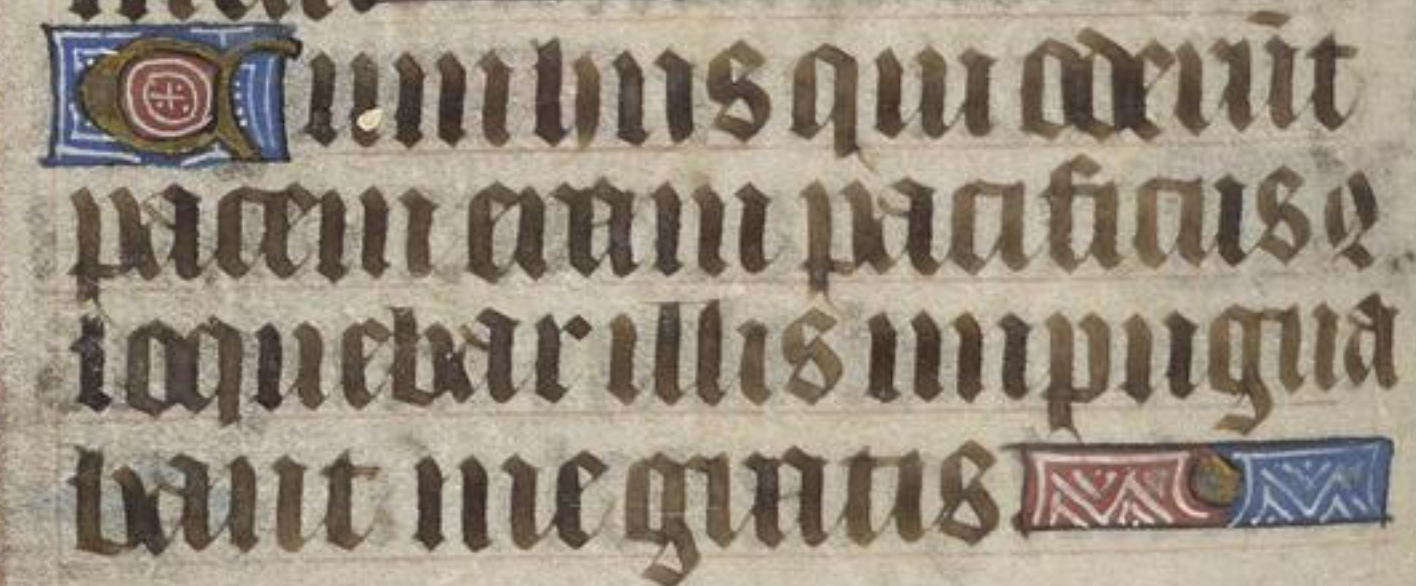 Cum hiis qui oderūt
pacem eram pacificus q
loquebar illis impugna
bant me gratis